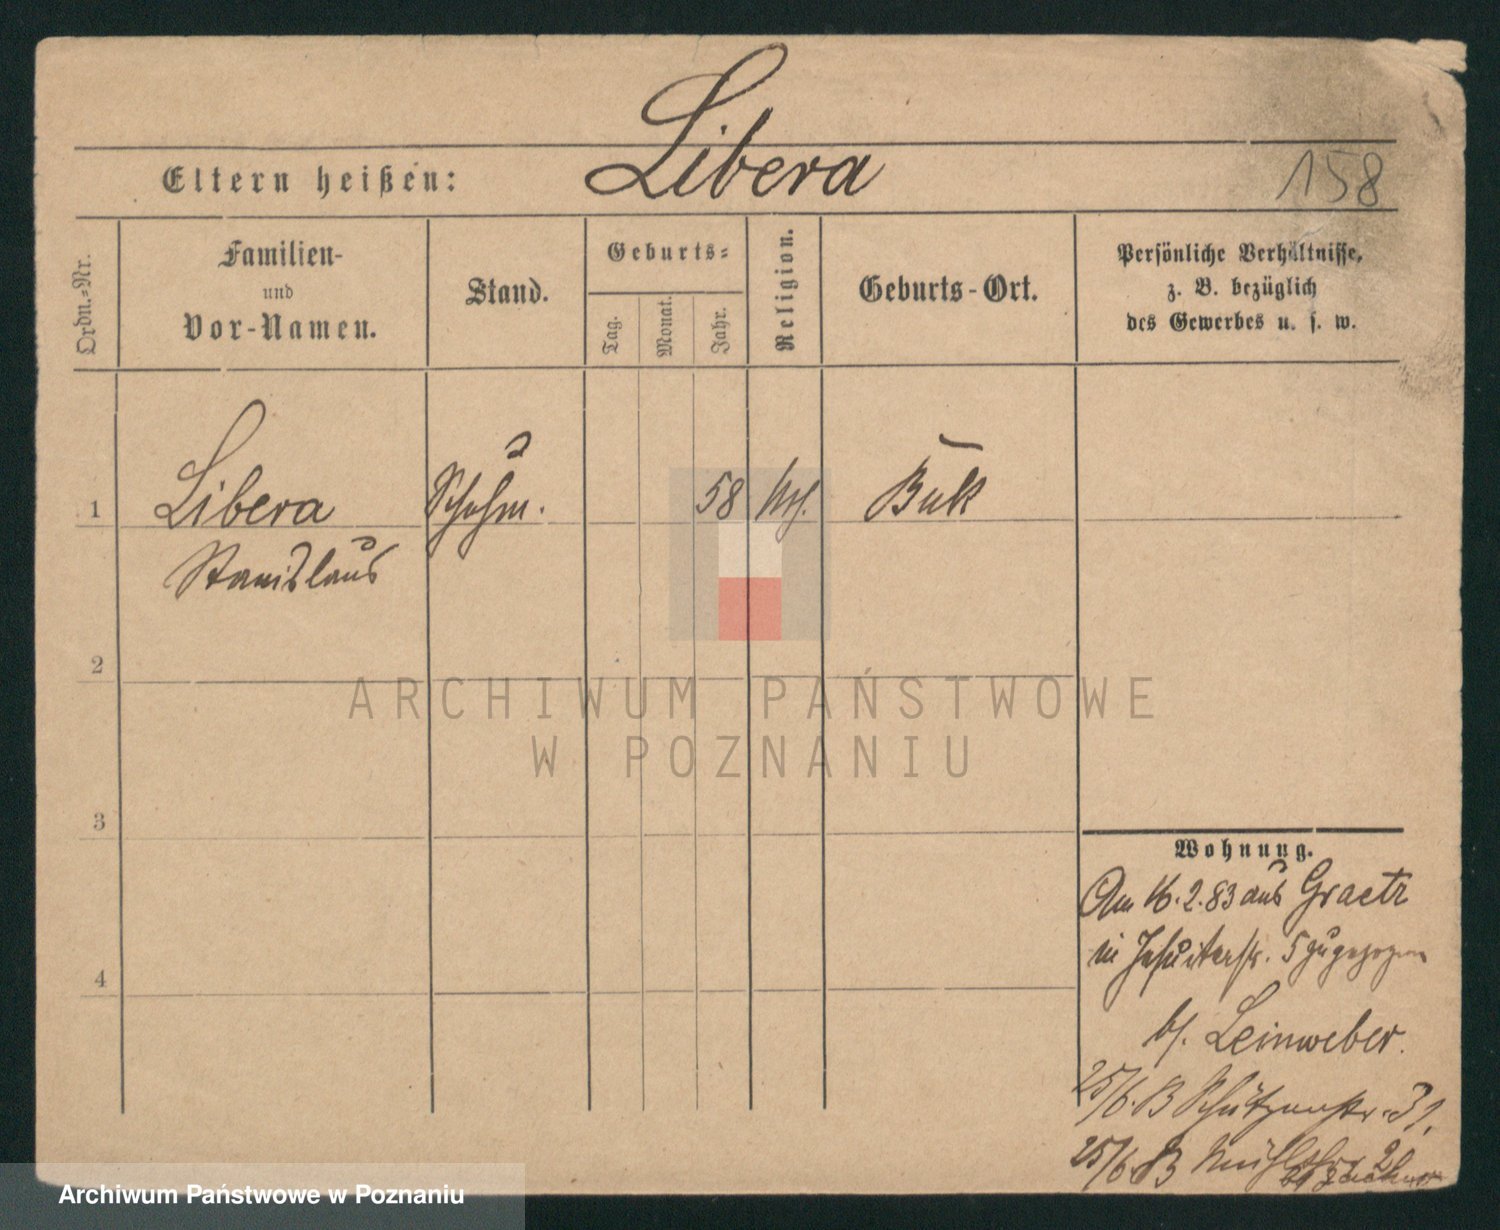 Libera
Eltern heißen:
158
Ordn.-Nr.
Familien-
und
Vor-Namen.
Stand.
Geburts-
Tag.
Monat.
Jahr.
Religion.
Geburts-Ort.
Persönliche Verhältnisse,
z. B. bezüglich
des Gewerbes u. s. w.
1
Libera
Schuhm.
58
kth.
Buk
Stanislaus
2
ARCHIWUM PAŃSTWOWE
W POZNANIU
3
Wohnung.
Am 16.2.83 aus Graetz
in Jesuiterstr. 5 zugezogen
4
b/. Leinweber.
25/6. 83 Schützenstr. 31.
25/6 83 Mühlstr. 2
Archiwum Państwowe w Poznaniu